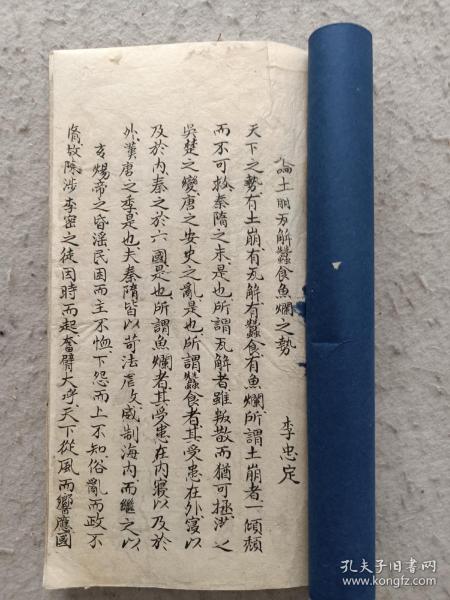 論土崩瓦解蠶食魚爛之勢
李忠定
天下之勢有土崩有瓦解有蠶食有魚爛所謂土崩者一傾頹
而不可救秦隋之末是也所謂瓦解者雖叛散而猶可拯漢之
吳楚之變唐之安史之亂是也所謂蠶食者其受患在外寖以
及於內秦之於六國是也所謂魚爛者其受患在內寖以及於
外漢唐之季是也夫秦隋皆以苛法虐政威制海内而繼之以
亥煬帝之昏淫民困而主不恤下怨而上不知俗亂而政不
脩故陳涉李密之徒因時而起奮臂大呼天下從風而響應國
孔夫子旧书网
www.kongfz.com